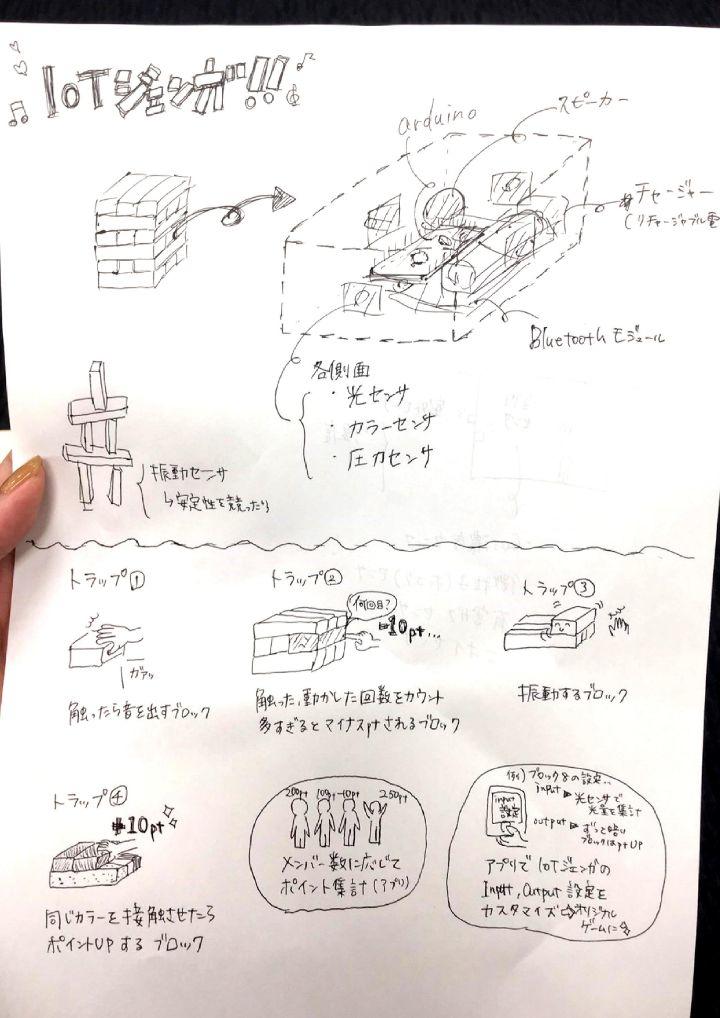 IoTジェンガ!!
arduino
スピーカー
チャージャー
(リチャージャブル電
Bluetoothモジュール
各側面
・光センサ
・カラーセンサ
・圧力センサ
振動センサ
↳安定性を競ったり
トラップ①
ガァッ
触ったら音を出すブロック
トラップ②
何回目?
-10pt...
触った、動かした回数をカウント
多すぎるとマイナスptされるブロック
トラップ③
振動するブロック
トラップ④
10pt
同じカラーを接触させたら
ポイントUPするブロック
200pt 100pt -10pt 250pt
メンバー数に応じて
ポイント集計(アプリ)
例)ブロック8の設定..
input
設定
input ▶ 光センサで
光量を集計
output ▶ ずっと暗い
ブロックはptUP
アプリでIoTジェンガの
Input, Output設定を
カスタマイズ⇨オリジナル
ゲームに